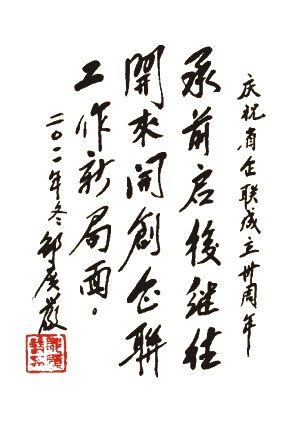 庆祝省企联成立卅周年
承前启後继往
開來開創企聯
工作新局面.
二〇一一年冬邹广严